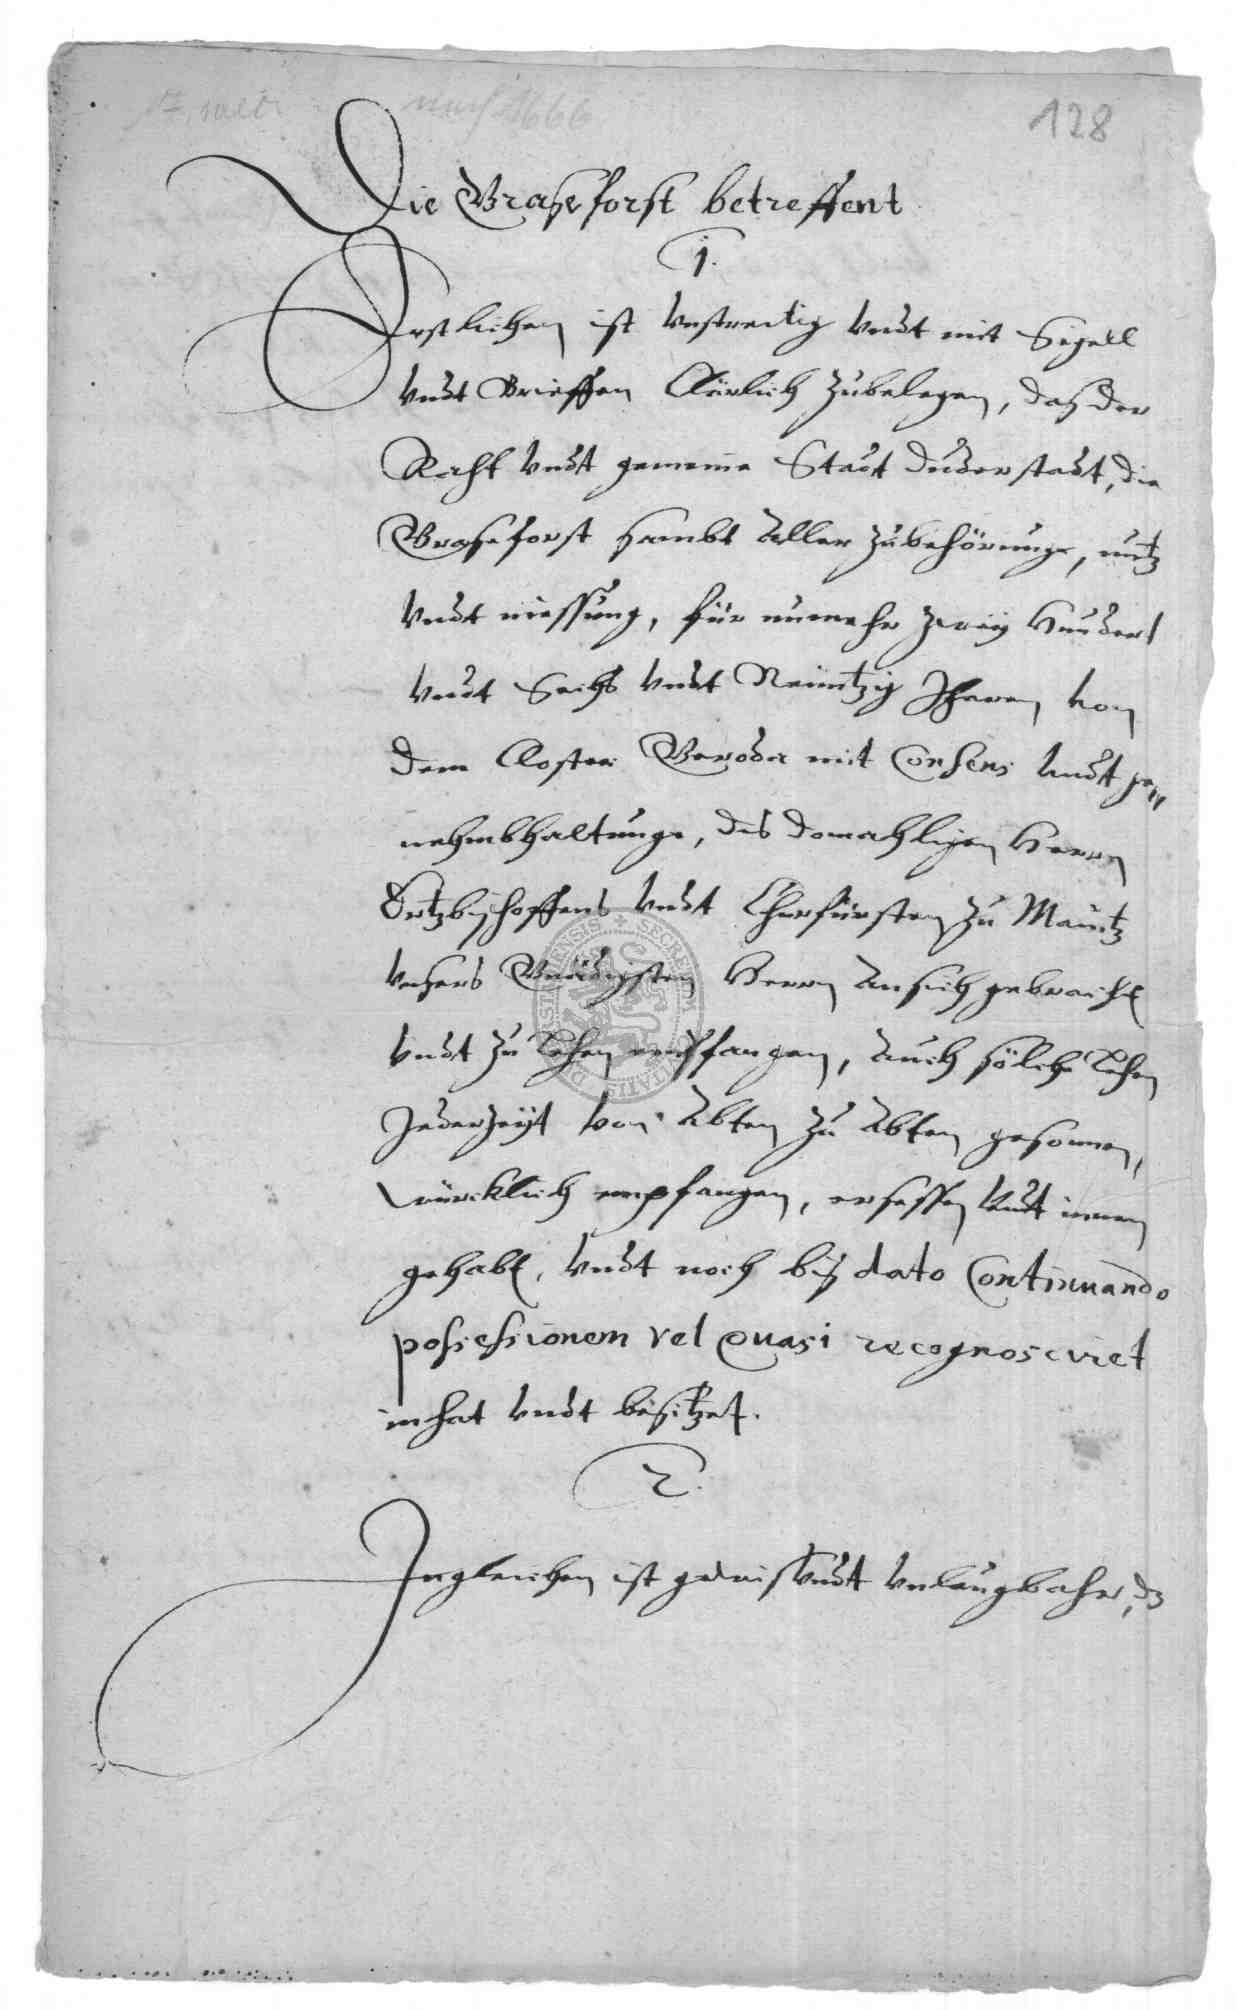 nach 1666
128
Die Graseforst betreffent
1.
Erstlichen ist vnstreitig vndt mit Sigell
vndt Brieffen Clärlich zubelegen, daß der
Raht vndt gemeine Stadt Duderstadt, die
Graseforst sambt aller zubehörunge, nutz
vndt niessung, für nunmehr zweÿ Hundert
vndt Sechs vndt Neuntzig Jharen von
dem Closter Gerode mit Consens vndt ge„
nehmbhaltunge, des domahligen Herrn
Ertzbischoffens vndt Churfürsten zu Maintz
vnsers Gnädigsten Herrn ansich gebracht
vndt zu Lehen entpfangen, auch sölche Lehen
Jederzeÿt von Abten zu Abten gesonnen,
würcklich empfangen, ersessen vndt innen
gehabt, vndt noch biß dato Continuando
possessionem vel quasi recognosciret
inhat vndt besitzet.
2.
Ingleichen ist gewis vndt vnleugbahr, dz